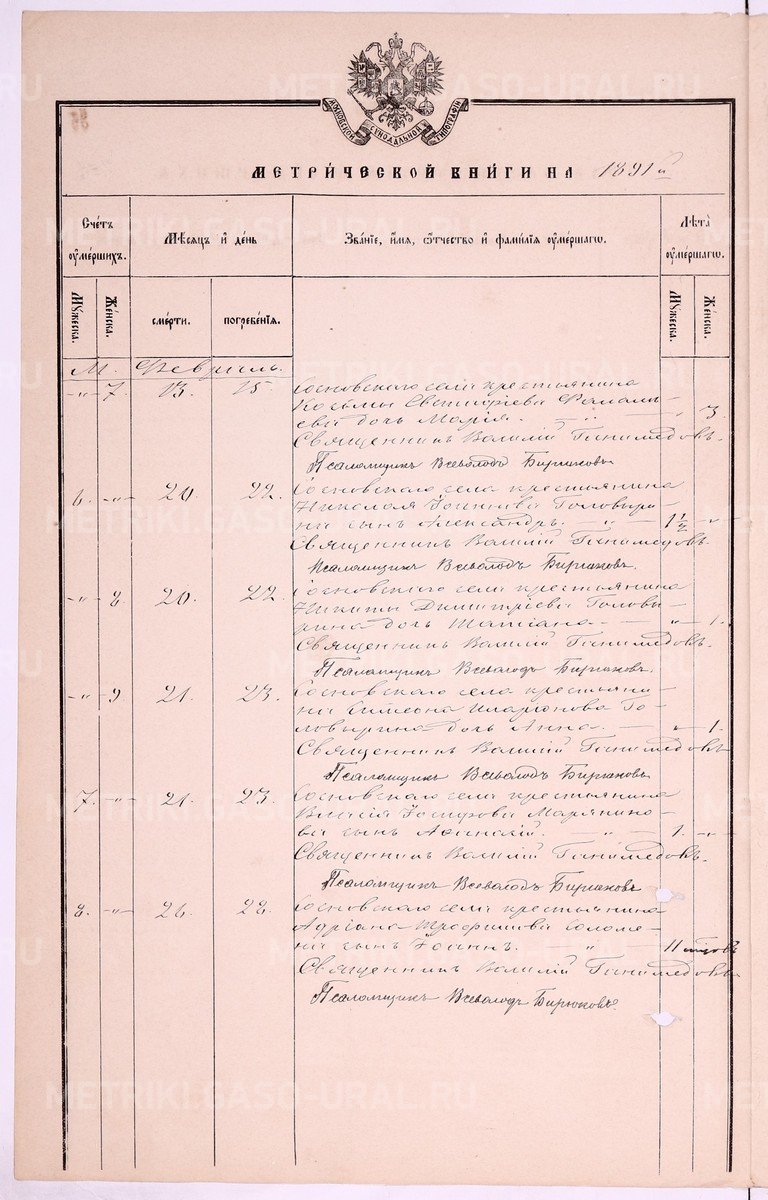 МОСКОВСКОЙ СѴНОДАЛЬНОЙ ТИПОГРАФІИ
МЕТРИ́ЧЕСКОЙ КНИ́ГИ НА 1891й
Сче́тъ ᲂу҆ме́ршихъ.
Мѣ́сяцъ и҆ де́нь
Зва́нїе, и҆́мѧ, ѻ҆́тчество и҆ фами́лїѧ ᲂу҆ме́ршагѡ.
Лѣ́та ᲂу҆ме́ршагѡ.
Мꙋ́жеска.
Же́нска.
сме́рти.
погребе́нїѧ.
Мꙋ́жеска.
Же́нска.
М. Февраль.
-„- 7. 13. 15. Сосновскаго села крестьянина
Козьмы Евстафіева
ева дочь Марія. - „ - „ 3
Священникъ Василій Ганимедовъ.
Псаломщикъ Всеволодъ Бирюковъ.
6. -„- 20. 22. Сосновскаго села крестьянина
Николая Іоаннова Головыри-
на сынъ Александръ. „ - 1 1/2 - „ -
Священникъ Василій Ганимедовъ
Псаломщикъ Всеволодъ Бирюковъ.
-„- 8 20. 22. Сосновскаго села крестьянина
Никиты Димитріева Головы-
рина дочь Татіана - „ - 1.
Священникъ Василій Ганимедовъ.
Псаломщикъ Всеволодъ Бирюковъ.
-„- 9 21. 23. Сосновскаго села крестьяни-
на Симеона Иларіонова Го-
ловырина дочь Анна. - „ - 1.
Священникъ Василій Ганимедовъ
Псаломщикъ Всеволодъ Бирюковъ
7. -„- 21. 23. Сосновскаго села крестьянина
Власія Іосифова Марянино-
ва сынъ Афанасій. - „ - 1. - „ -
Священникъ Василій Ганимедовъ.
Псаломщикъ Всеволодъ Бирюковъ
8. -„- 26. 28. Сосновскаго села крестьянина
Адріана Трофимова Соломе-
на сынъ Іоаннъ. - „ 11
Священникъ Василій Ганимедовъ.
Псаломщикъ Всеволодъ Бирюковъ.
METRIKI.GASO-URAL.RU